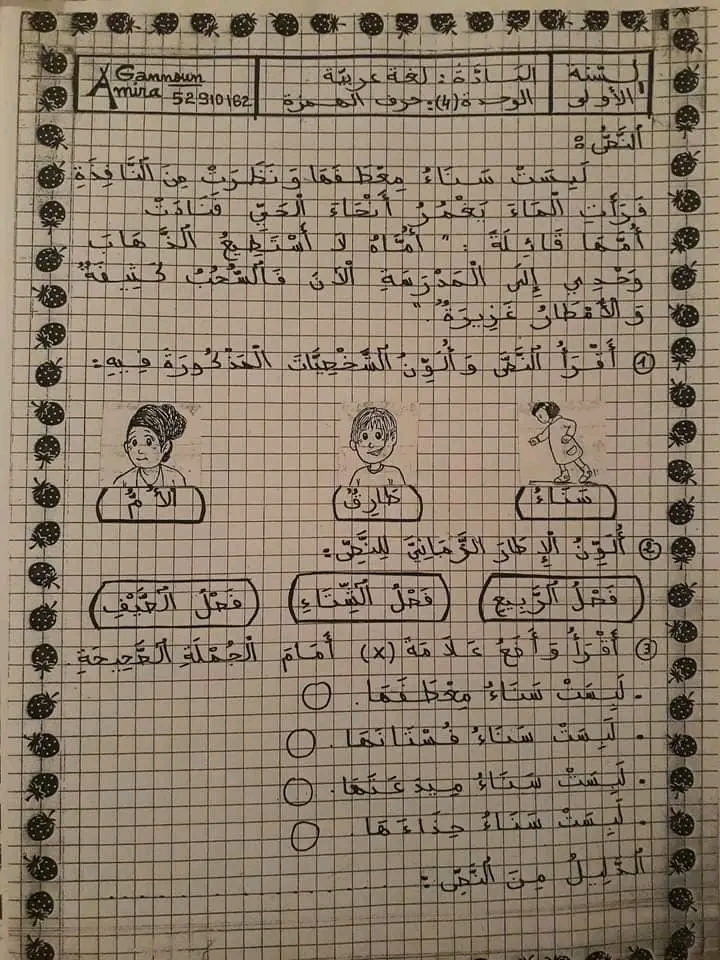 السّنة الأولى
المَادَّةُ: لغة عربيّة
الوحدة (4): حرف الهمزة
Gannoun Amira 52 910 162
اَلنَّصُّ:
لَبِسَتْ سَنَاءُ مِعْطَفَهَا وَنَظَرَتْ مِنَ اَلنَّافِذَةِ
فَرَأَتِ الْمَاءَ يَغْمُرُ أَنْحَاءَ الْحَيِّ فَنَادَتْ
أُمَّهَا قَائِلَةً: " أُمَّاهُ لَا أَسْتَطِيعُ الذَّهَابَ
وَحْدِي إِلَى الْمَدْرَسَةِ الْآنَ فَالسُّحُبُ كَثِيفَةٌ
وَالْأَمْطَارُ غَزِيرَةٌ."
1 أَقْرَأُ النَّصَّ وَأُلَوِّنُ الشَّخْصِيَّاتَ الْمَذْكُورَةَ فِيهِ:
سَنَاءُ
طَارِقٌ
اَلْأُمُّ
2 أُلَوِّنُ الْإِطَارَ الزَّمَانِيَّ لِلنَّصِّ:
فَصْلُ الرَّبِيعِ
فَصْلُ الشِّتَاءِ
فَصْلُ الصَّيْفِ
3 أَقْرَأُ وَأَضَعُ عَلَامَةَ (x) أَمَامَ الْجُمْلَةِ الصَّحِيحَةِ
. لَبِسَتْ سَنَاءُ مِعْطَفَهَا.
. لَبِسَتْ سَنَاءُ فُسْتَانَهَا.
. لَبِسَتْ سَنَاءُ مِيدَعَتَهَا.
. لَبِسَتْ سَنَاءُ حِذَاءَهَا.
اَلدَّلِيلُ مِنَ النَّصِّ: ..............................